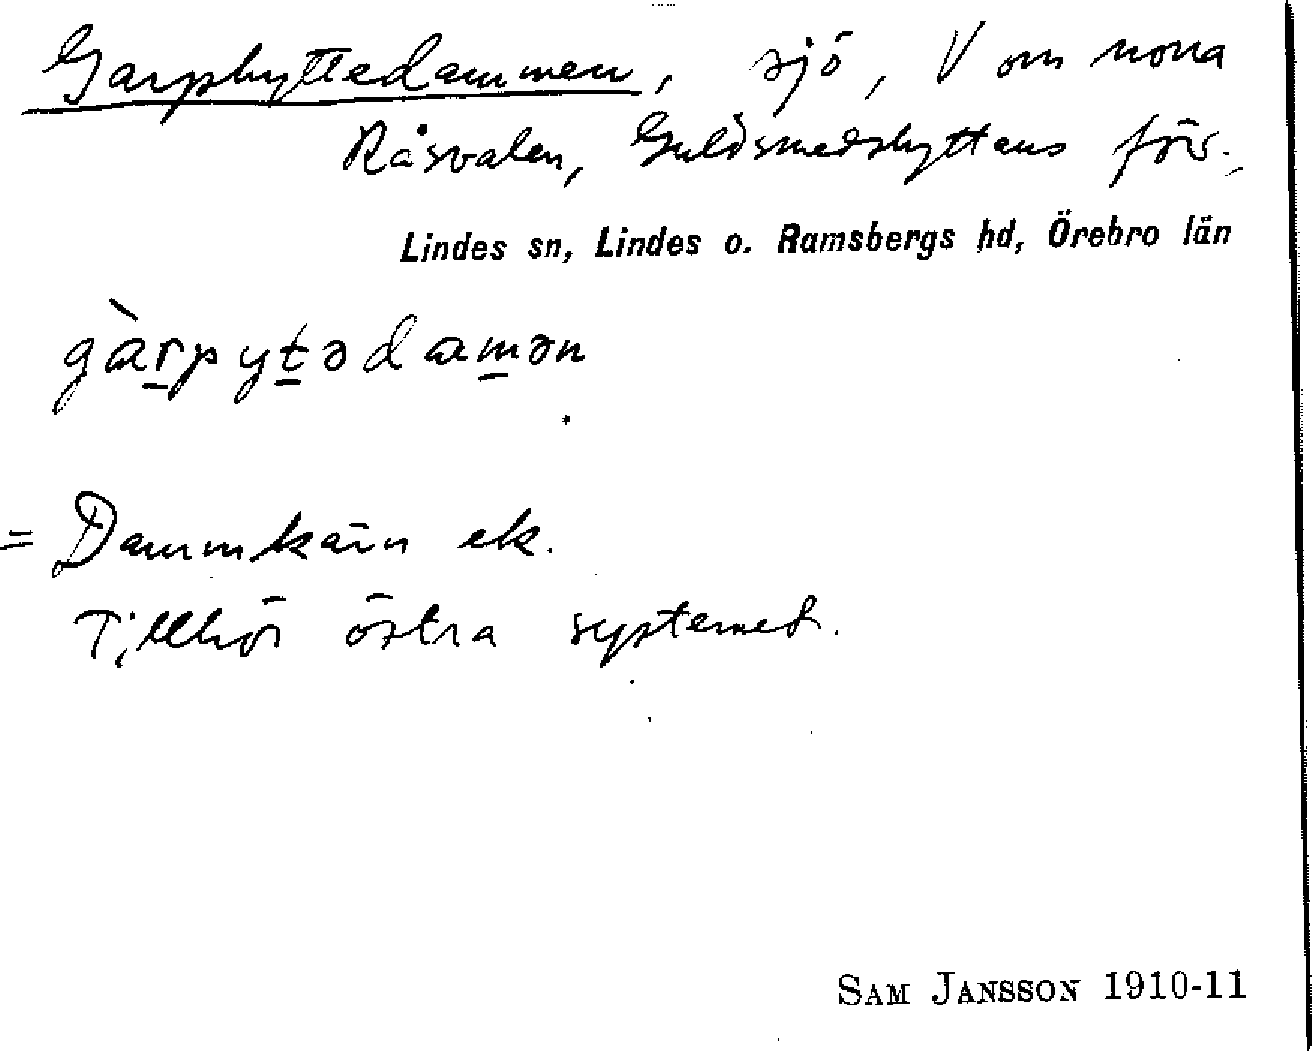 Garphyttedammen, sjö, V om norra
Råsvalen, Guldsmedshyttans förs.,
Lindes sn, Lindes o. Ramsbergs hd, Örebro län
gàr̲pyt̲ədam̲ən
= Dammkärn ek.
Tillhör östra systemet.
SAM JANSSON 1910-11